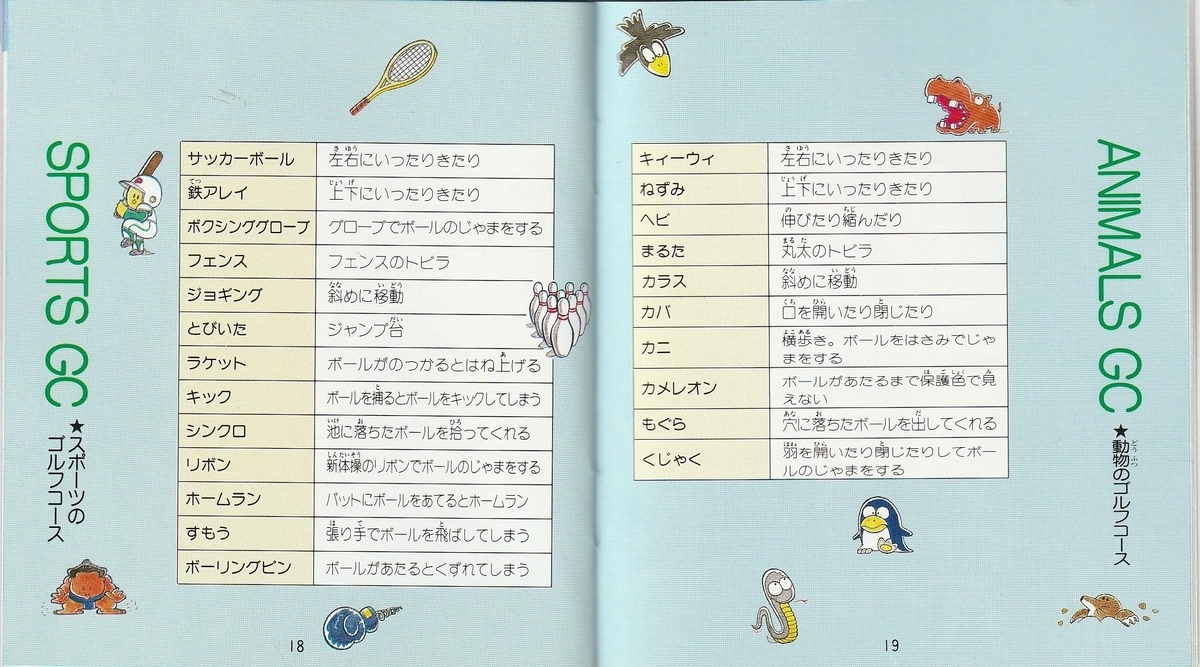 SPORTS GC
★スポーツの
ゴルフコース
サッカーボール 左右にいったりきたり
鉄アレイ 上下にいったりきたり
ボクシンググローブ グローブでボールのじゃまをする
フェンス フェンスのトビラ
ジョギング 斜めに移動
とびいた ジャンプ台
ラケット ボールがのっかるとはね上げる
キック ボールを捕るとボールをキックしてしまう
シンクロ 池に落ちたボールを拾ってくれる
リボン 新体操のリボンでボールのじゃまをする
ホームラン バットにボールをあてるとホームラン
すもう 張り手でボールを飛ばしてしまう
ボーリングピン ボールがあたるとくずれてしまう
18
ANIMALS GC
★動物のゴルフコース
キィーウィ 左右にいったりきたり
ねずみ 上下にいったりきたり
ヘビ 伸びたり縮んだり
まるた 丸太のトビラ
カラス 斜めに移動
カバ 口を開いたり閉じたり
カニ 横歩き。ボールをはさみでじゃ
まをする
カメレオン ボールがあたるまで保護色で見
えない
もぐら 穴に落ちたボールを出してくれる
くじゃく 羽を開いたり閉じたりしてボー
ルのじゃまをする
19